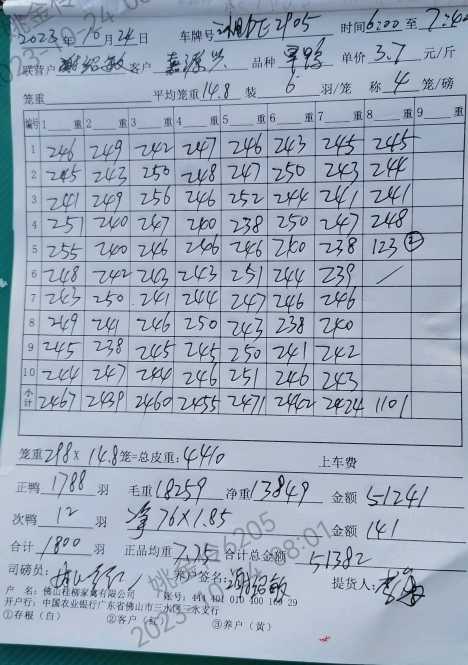 2023年10月24日 车牌号 2905 时间6:00至7:40
联营户谢绍敏 客户嘉源兴 品种 单价3.7元/斤
笼重 平均笼重14.8 装6羽/笼 称4笼/磅
编号 1 重 2 重 3 重 4 重 5 重 6 重 7 重 8 重 9 重
1 246 249 242 247 246 243 245 245
2 245 243 250 248 247 250 243 244
3 241 249 256 246 252 244 241 241
4 251 240 247 240 238 250 247 248
5 255 240 246 246 246 240 238 123 ②
6 248 242 243 243 251 244 239 /
7 243 250 241 244 247 246 246
8 249 241 246 250 243 238 240
9 245 238 245 245 250 241 242
10 244 247 244 246 251 246 243
小计 2467 2439 2460 2455 2471 2442 2424 1101
笼重298×14.8笼=总皮重:4410 上车费
正鸭1788羽 毛重18259 净重13849 金额51241
次鸭12羽 净76×1.85 金额141
合计1800羽 正品均重7.75 合计总金额51382
司磅员: 养户签名:谢绍敏 提货人:
户 名:佛山桂柳家禽有限公司 账号:444 401 010 400 29
开户行:中国农业银行广东省佛山市三水区三水支行
①存根(白) ②客户(红) ③养户(黄)
姚金伶6205